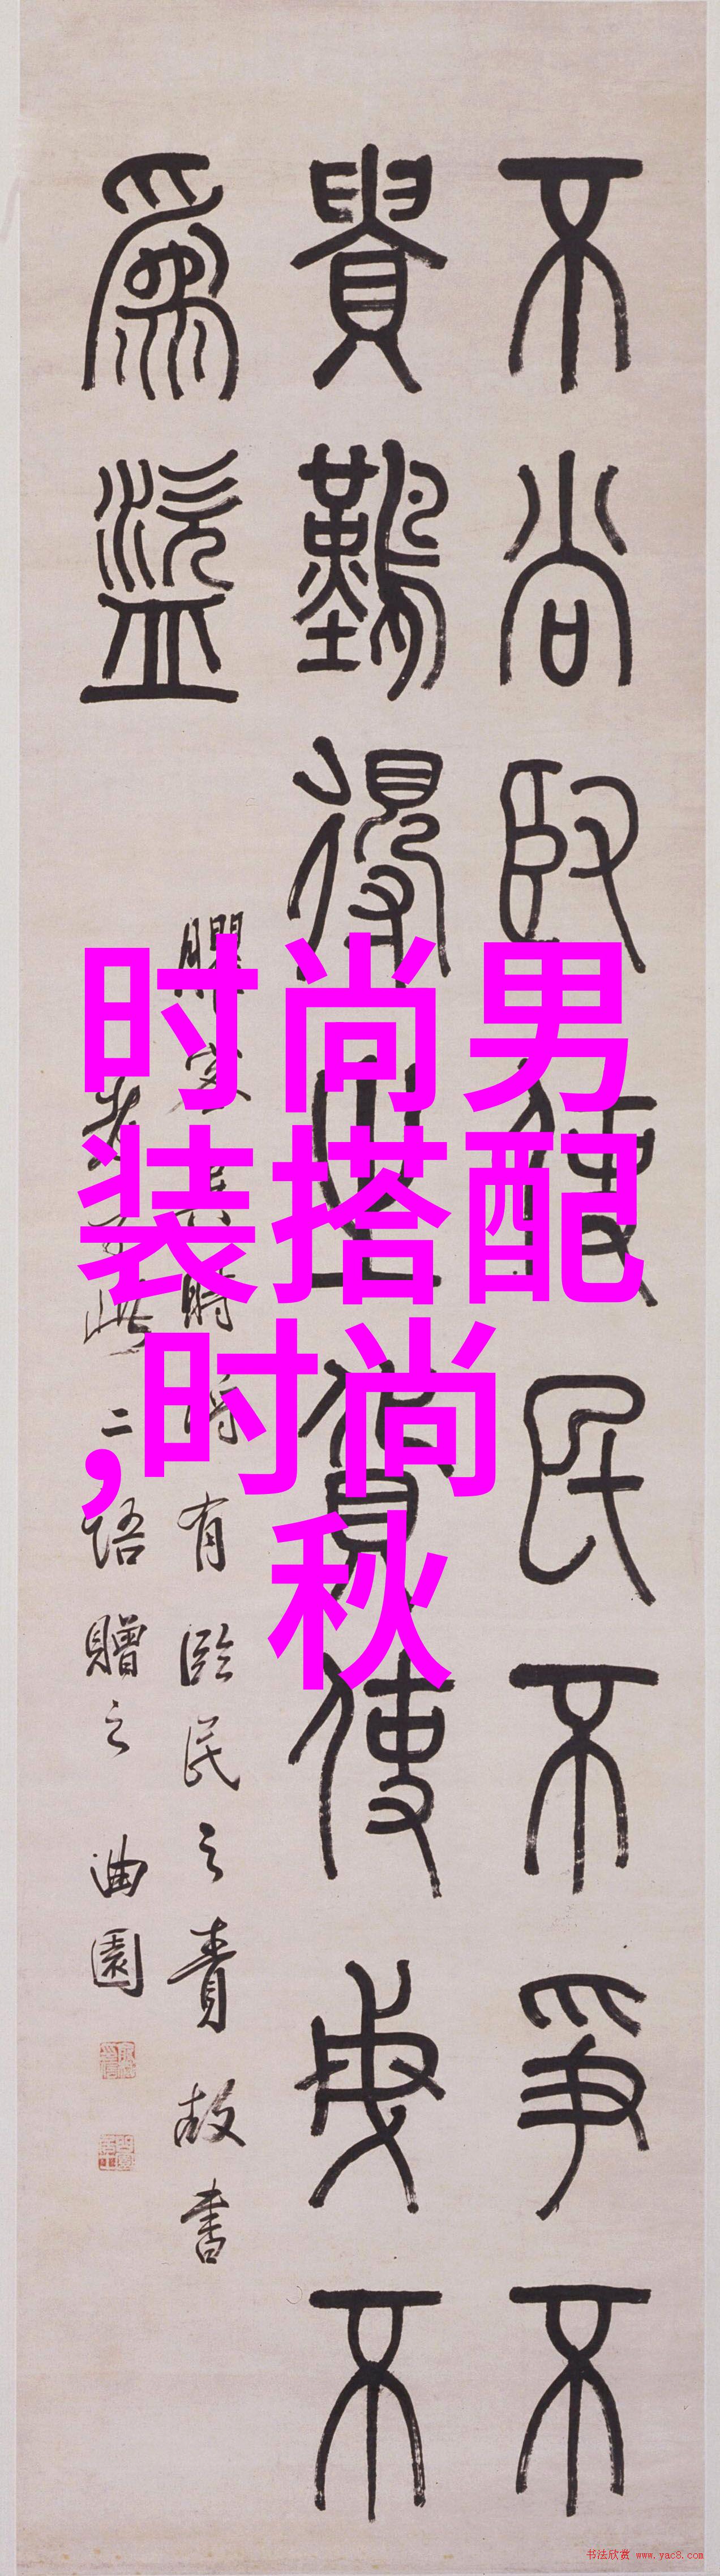 不尚臤使民不爭不
貴難得之貨使民不
爲盜
時將有臨民之責故書
老子此二語贈之 曲園
时尚男
装搭配
,时尚
秋
书法欣赏 www.yac8.com